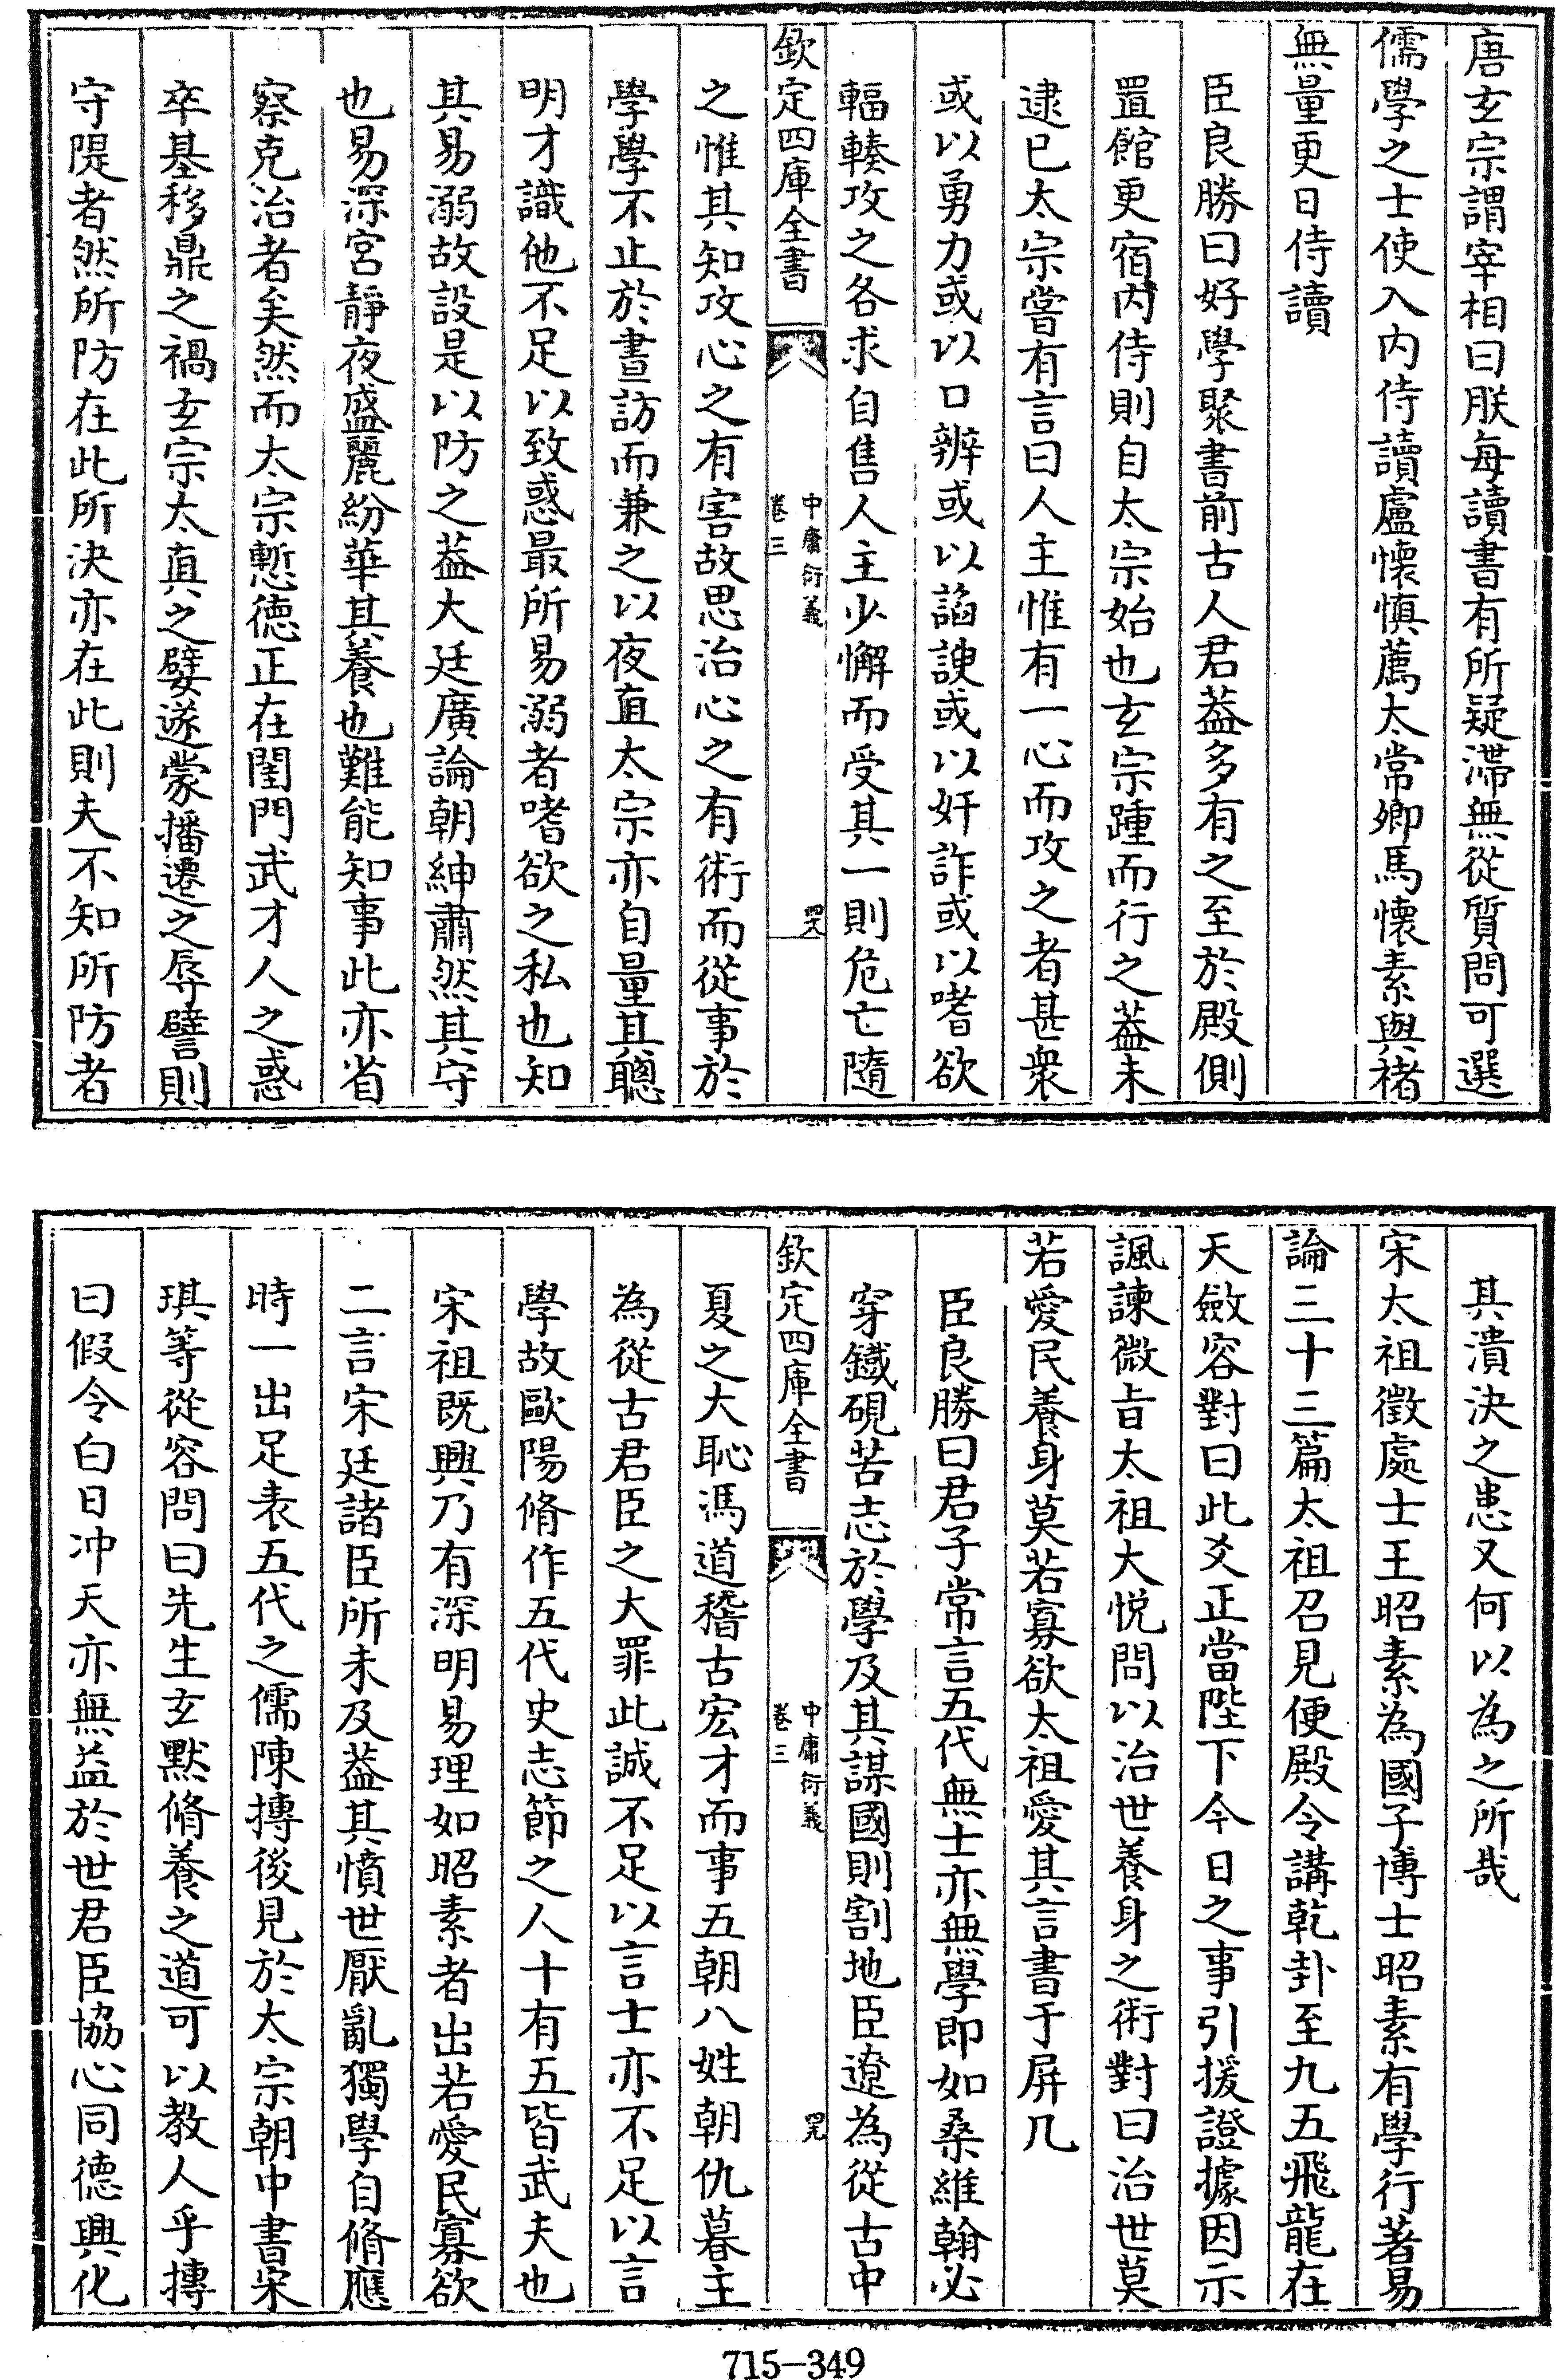 唐玄宗謂宰相曰朕每讀書有所疑滯無從質問可選
儒學之士使入内侍讀盧懷慎薦太常卿馬懷素與褚
無量更日侍讀
臣良勝曰好學聚書前古人君葢多有之至於殿側
置館更宿内侍則自太宗始也玄宗踵而行之葢未
逮已太宗嘗有言曰人主惟有一心而攻之者甚衆
或以勇力或以口辨或以諂諛或以奸詐或以嗜欲
輻輳攻之各求自售人主少懈而受其一則危亡隨
欽定四庫全書
中庸衍義
卷三
四八
之惟其知攻心之有害故思治心之有術而從事於
學學不止於晝訪而兼之以夜直太宗亦自量其聰
明才識他不足以致惑最所易溺者嗜欲之私也知
其易溺故設是以防之葢大廷廣論朝紳肅然其守
也易深宮靜夜盛麗紛華其養也難能知事此亦省
察克治者矣然而太宗慙德正在閨門武才人之惑
卒基移鼎之禍玄宗太真之嬖遂蒙播遷之辱譬則
守隄者然所防在此所決亦在此則夫不知所防者
其潰決之患又何以為之所哉
宋太祖徵處士王昭素為國子博士昭素有學行著易
論三十三篇太祖召見便殿令講乾卦至九五飛龍在
天斂容對曰此爻正當陛下今日之事引援證據因示
諷諫微旨太祖大悅問以治世養身之術對曰治世莫
若愛民養身莫若寡欲太祖愛其言書于屏几
臣良勝曰君子常言五代無士亦無學即如桑維翰必
穿鐵硯苦志於學及其謀國則割地臣遼為從古中
欽定四庫全書
中庸衍義
卷三
四九
夏之大恥馮道稽古宏才而事五朝八姓朝仇暮主
為從古君臣之大罪此誠不足以言士亦不足以言
學故歐陽脩作五代史志節之人十有五皆武夫也
宋祖既興乃有深明易理如昭素者出若愛民寡欲
二言宋廷諸臣所未及葢其憤世厭亂獨學自脩應
時一出足表五代之儒陳摶後見於太宗朝中書宋
琪等從容問曰先生玄默脩養之道可以教人乎摶
曰假令白日冲天亦無益於世君臣協心同德興化
715-349